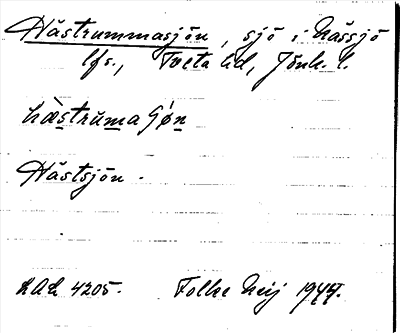 Hästrummasjön, sjö i Nässjö
lfs., Tveta hd, Jönk. l.
hæstrumaʃøn
Hästsjön.
4205. Folke Neij 1944.